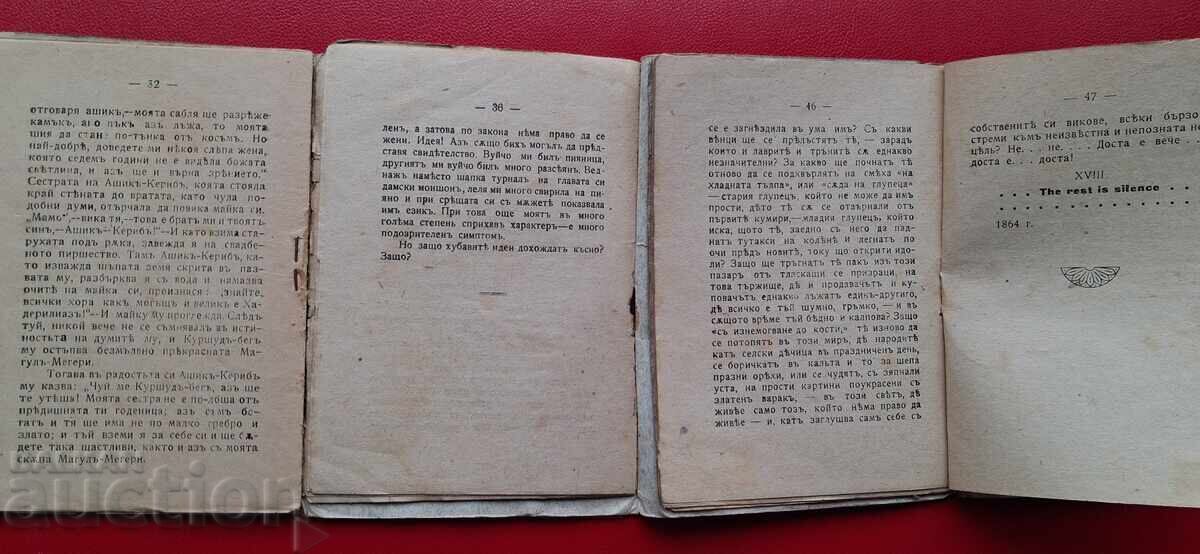 — 32 —
отговаря ашикъ,—моята сабля ще разрѣже
камъкъ, ако пъкъ азъ лъжа, то моята
шия да стане по-тънка отъ косъмъ. Но
най-добрѣ, доведете ми нѣкоя слѣпа жена,
която седемъ години не е видѣла божата
свѣтлина, и азъ ще и върна зрѣнието."
Сестрата на Ашикъ-Керибъ, която стояла
край стѣната до вратата, като чула по-
добни думи, отърчала да повика майка си.
„Мамо", —вика тя,—това е братъ ми и твоятъ
синъ,—Ашикъ-Керибъ!"—И като взима ста-
рухата подъ рѫка, завежда я на свадбе-
ното пиршество. Тамъ Ашикъ-Керибъ, ка-
то изважда шъпата земя скрита въ паз-
вата му, разбърква я съ вода и намазва
очитѣ на майка си, произнася: „Знайте,
всички хора какъ могъщъ и великъ е Ха-
дерилиазъ!"—И майка му прогледжа. Слѣдъ
туй, никой вече не се съмнявалъ въ исти-
ностьта на думитѣ му, и Куршудъ-бегъ
му остъпва безмълвно прѣкрасната Ма-
гулъ-Мегери.
Тогава въ радостьта си Ашикъ-Керибъ
му казва: „Чуй ме Куршудъ-бегъ, азъ ще
те утѣша! Моята сестра не е по-лоша отъ
прѣдишната ти годеница; азъ съмъ бо-
гатъ и тя ще има не по малко сребро и
злато; и тъй вземи я за себе си и ще бѫ-
дете така щастливи, както и азъ съ моята
скѫпа Магулъ-Мегери.
— 36 —
ленъ, а затова по закона нѣма право да се
жени. Идея! Азъ сѫщо бихъ могълъ да прѣд-
ставя свидѣтелство. Вуйчо ми билъ пияница,
другиятъ ми вуйчо билъ много разсѣянъ. Вед-
нажъ намѣсто шапка турналъ на главата си
дамски моншонъ, леля ми много свирила на пи-
яно и при срѣщата си съ мѫжетѣ показвала
имъ езикъ. При това още моятъ въ много
голѣма степень сприхавъ характеръ—е много
подозрителенъ симптомъ.
Но защо хубавитѣ идеи дохождатъ късно?
Защо?
— 46 —
се е загнѣздила въ ума имъ? Съ какви
вѣнци ще се прѣлъстятъ тѣ, — зарадъ
които и лавритѣ и тръната сѫ еднакво
незначителни? За какво ще почнатъ тѣ
отново да се подхвърлятъ на смѣха «на
хладната тълпа», или «сѫда на глупеца»
— стария глупецъ, който не може да имъ
прости, дѣто тѣ сѫ се отвърнали отъ
първитѣ кумири, —младия глупецъ, който
иска, щото тѣ, заедно съ него да пад-
натъ тутакси на колѣнѣ и легнатъ по
очи прѣдъ новитѣ, току що открити идо-
ли? Защо ще тръгнатъ тѣ пакъ изъ този
пазаръ отъ тласкащи се призраци, на
това тържище, дѣ и продавачътъ и ку-
повачътъ еднакво лъжатъ единъ-другиго,
дѣ всичко е тъй шумно, гръмко, — и въ
сѫщото врѣме тъй бѣдно и калпова? Защо
«съ изнемогване до кости,» тѣ изново да
се потопятъ въ този миръ, дѣ народитѣ
катъ селски дѣчица въ праздниченъ день,
се боричкатъ въ кальта и то за шепа
празни орѣхи, или се чудятъ, съ зяпнали
уста, на прости картини поукрасени съ
златенъ варакъ, — въ този свѣтъ, дѣ
живѣе само тозъ, който нѣма право да
живѣе — и, катъ заглушва самъ себе съ
— 47 —
собственитѣ си викове, всѣки бързо
стреми съмъ неизвѣстна и непозната
цѣль? Не. . . не. . . . Доста е вече . .
доста е. . . доста!
XVIII.
The rest is silence
1864 г.
auction